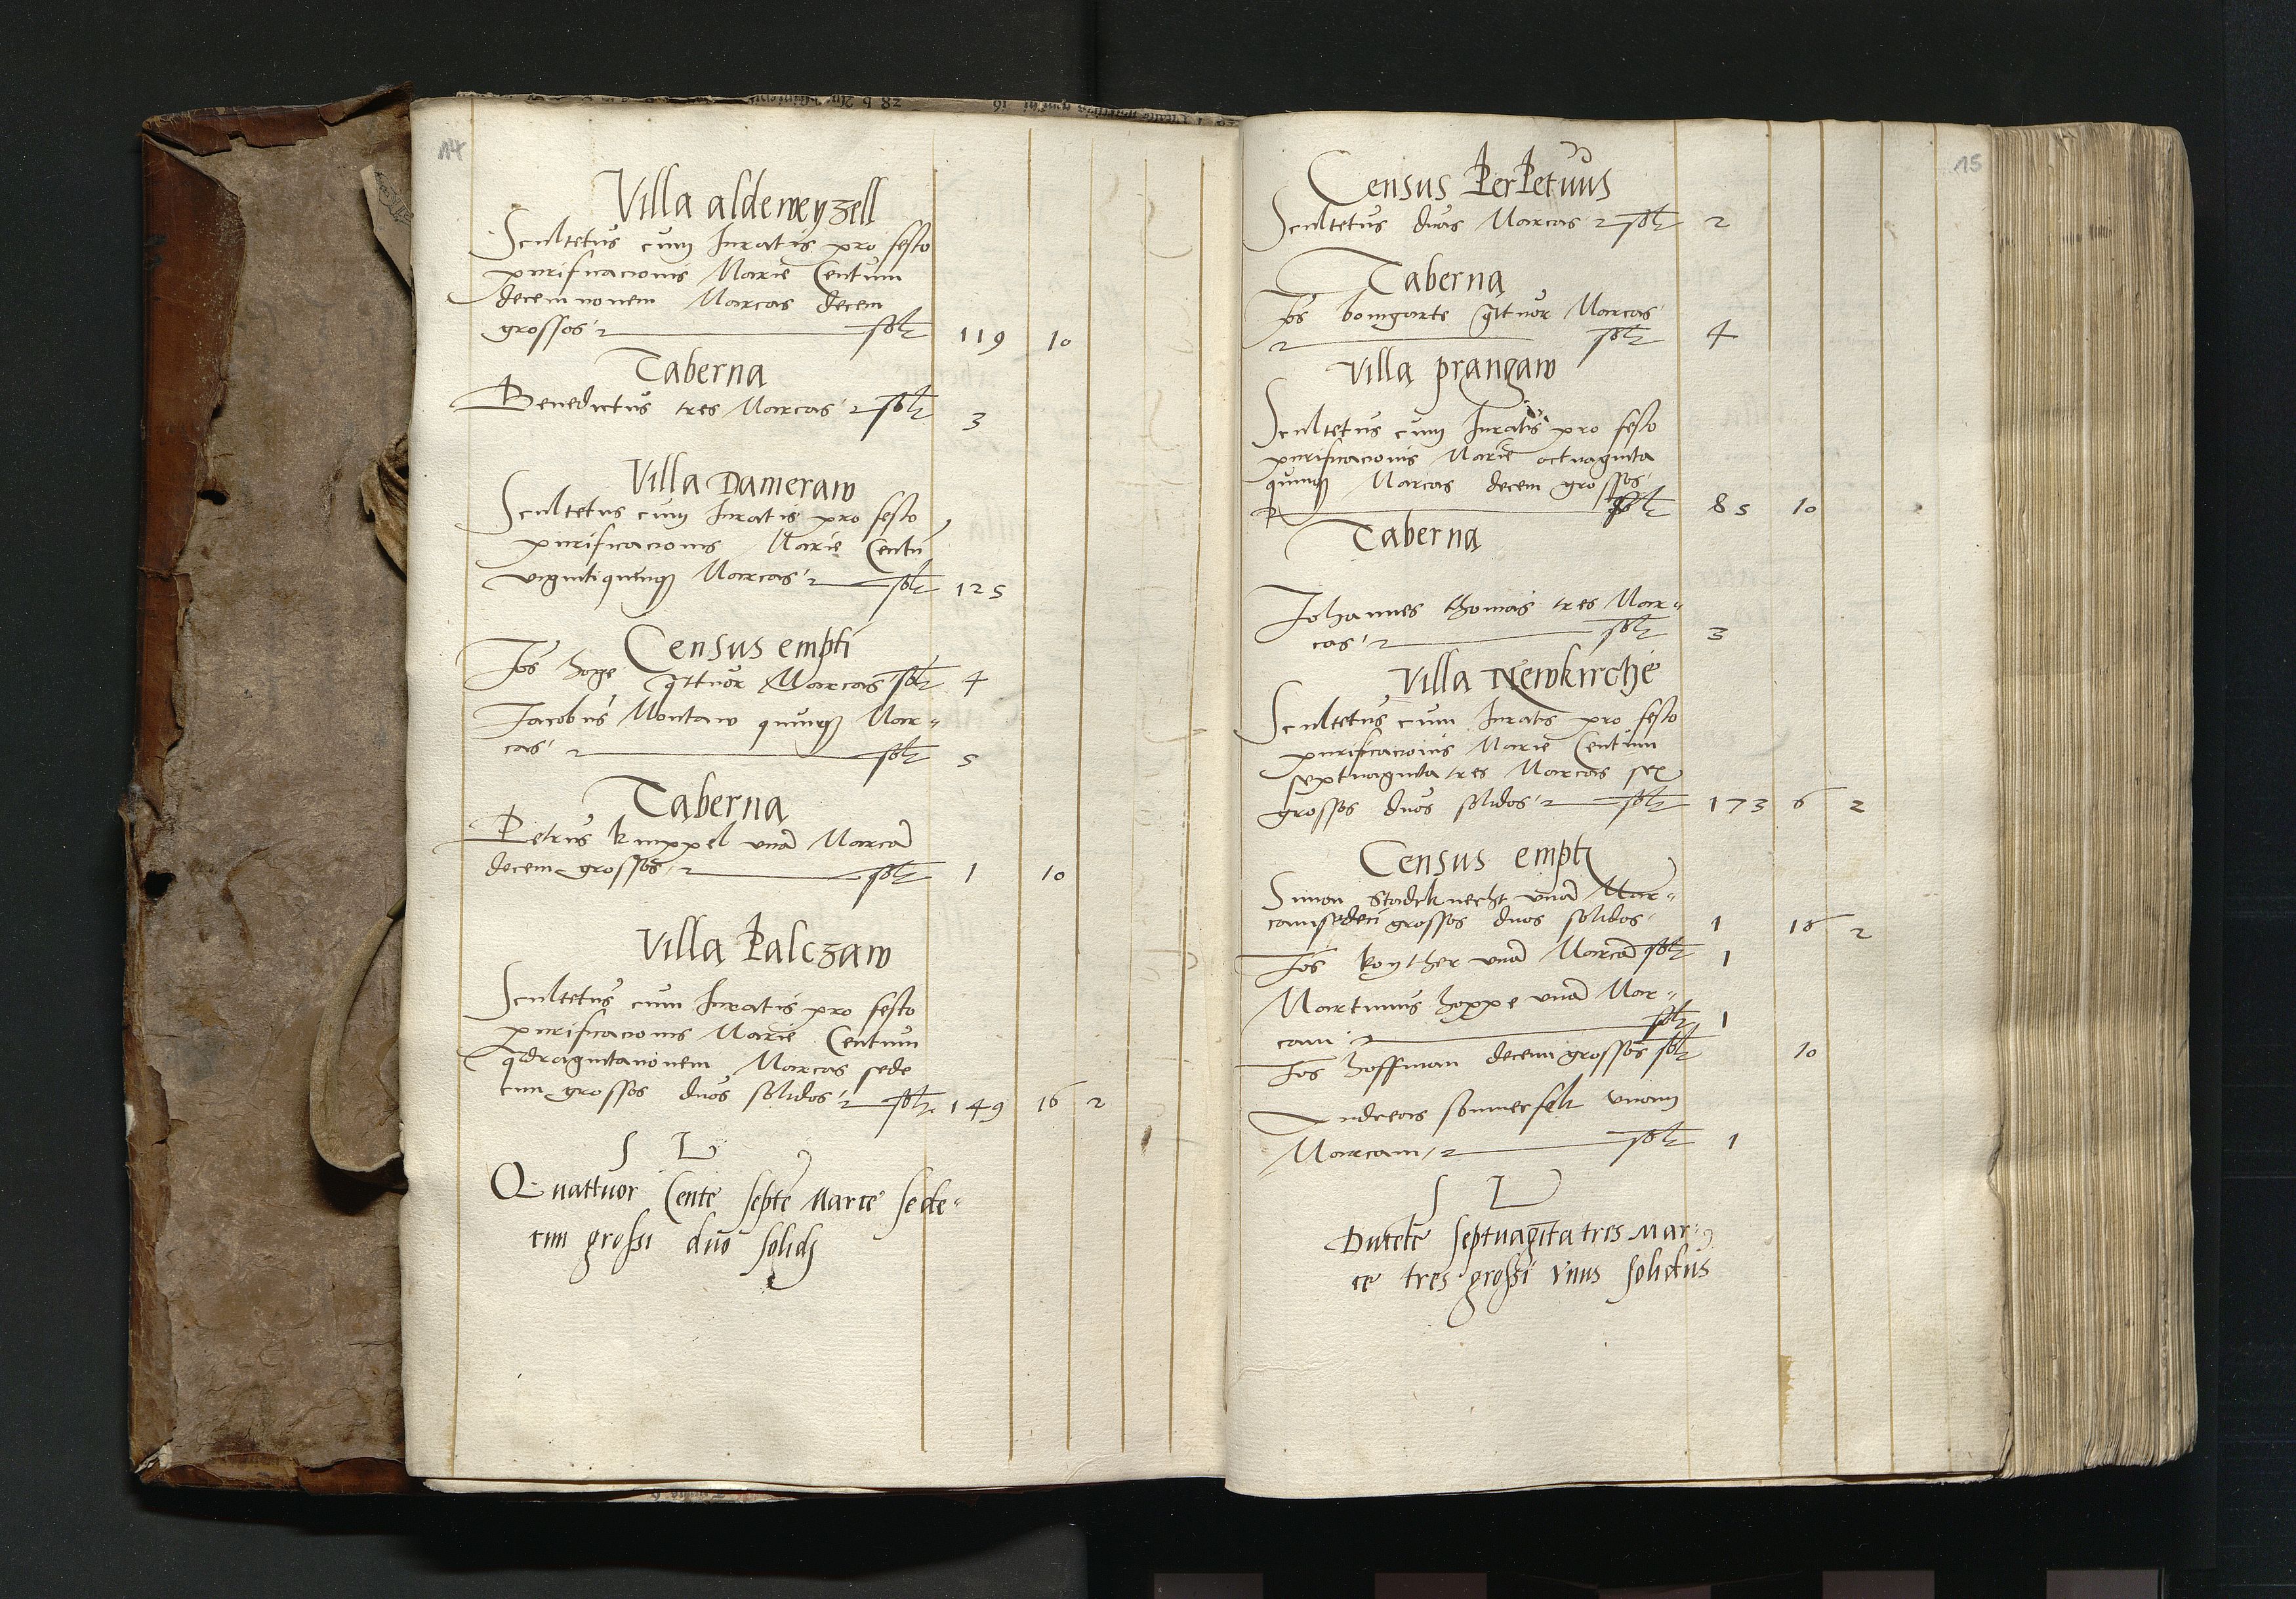 14
Villa aldeweyzell
Scultetus cum Juratis pro festo
purificacionis Marie Centum
decem nonem Marcas decem
grossos solt 119 10
Taberna
Benedictus tres Marcas solt 3
Villa Dameraw
Scultetus cum Juratis pro festo
purificacionis Marie Centu
vigintiquinq Marcas solt 125
Census empti
Jos hoge qttuor Marcas solt 4
Jacobus Montaw quinq Mar-
cas solt 5
Taberna
Petrus knippel una Marca
decem grossos solt 1 10
Villa Palczaw
Scultetus cum Juratis pro festo
purificacionis Marie Centum
qdragintanonem Marcas sede
cim grossos duos solidos solt 149 16 2
S L
Quattuor Cente septe Marce sede-
cim grossi duo solidj
15
Census PerPetuus
Scultetus duas Marcas solt 2
Taberna
Jos bomgarte qttuor Marcas
solt 4
Villa prangaw
Scultetus cum Juratis pro festo
purificacionis Marie octuaginta
quinq Marcas decem grossos
solt 85 10
Taberna
Johannes thomas tres Mar-
cas solt 3
Villa Newkirche
Scultetus cum Juratis pro festo
purificacionis Marie Centum
septuaginta tres Marcas sex
grossos duos solidos solt 173 6 2
Census emptj
Simon Stadtknecht una Mar-
cam sedeci grossos duos solidos 1 16 2
Jos koyther una Marca solt 1
Martinus hoppe una Mar-
cam solt 1
Jos hoffman decem grossos solt 10
Andreas sommerfelt unam
Marcam solt 1
S L
Ducete septuagita tres Mar-
ce tres grossi vnus solidus